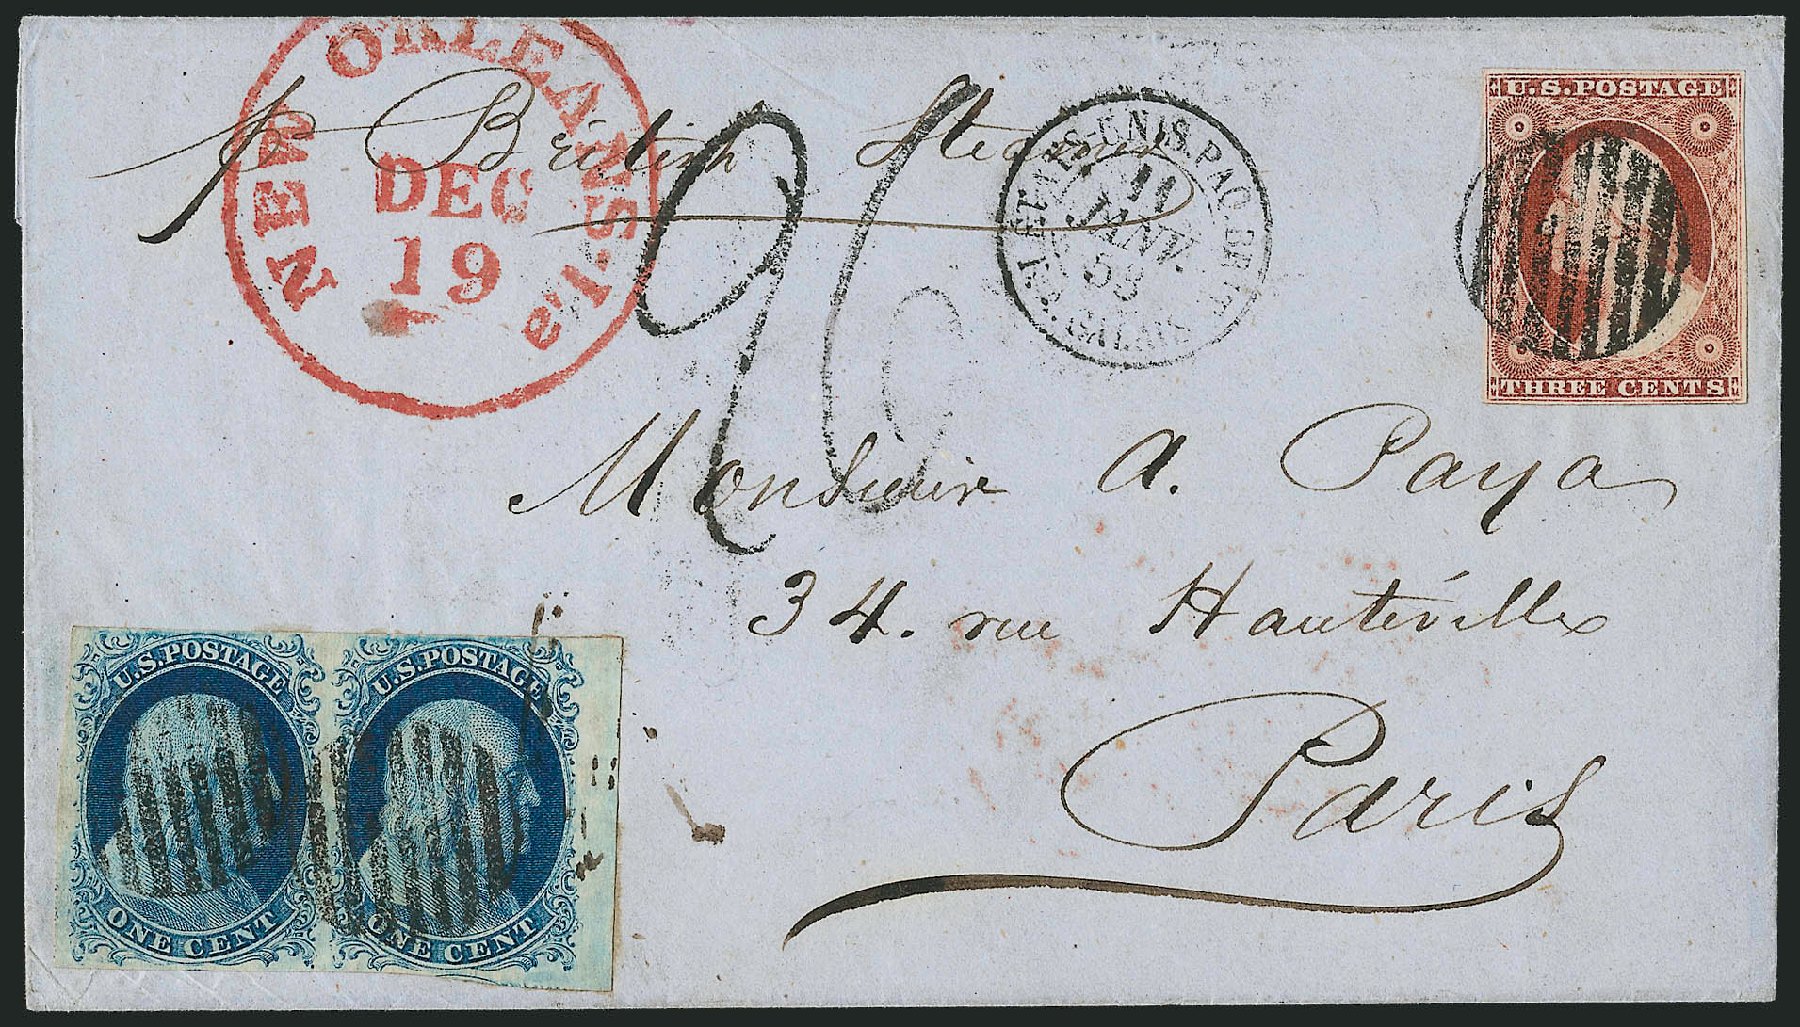 NEW ORLEANS · La
DEC
19
p British Steamer
ETATS-UNIS. PAQ. BRIT.
11
JANV.
CALAIS
U.S. POSTAGE
THREE CENTS
Monsieur A. Paya
34. rue Hauteville
Paris
U.S. POSTAGE
ONE CENT
U.S. POSTAGE
ONE CENT